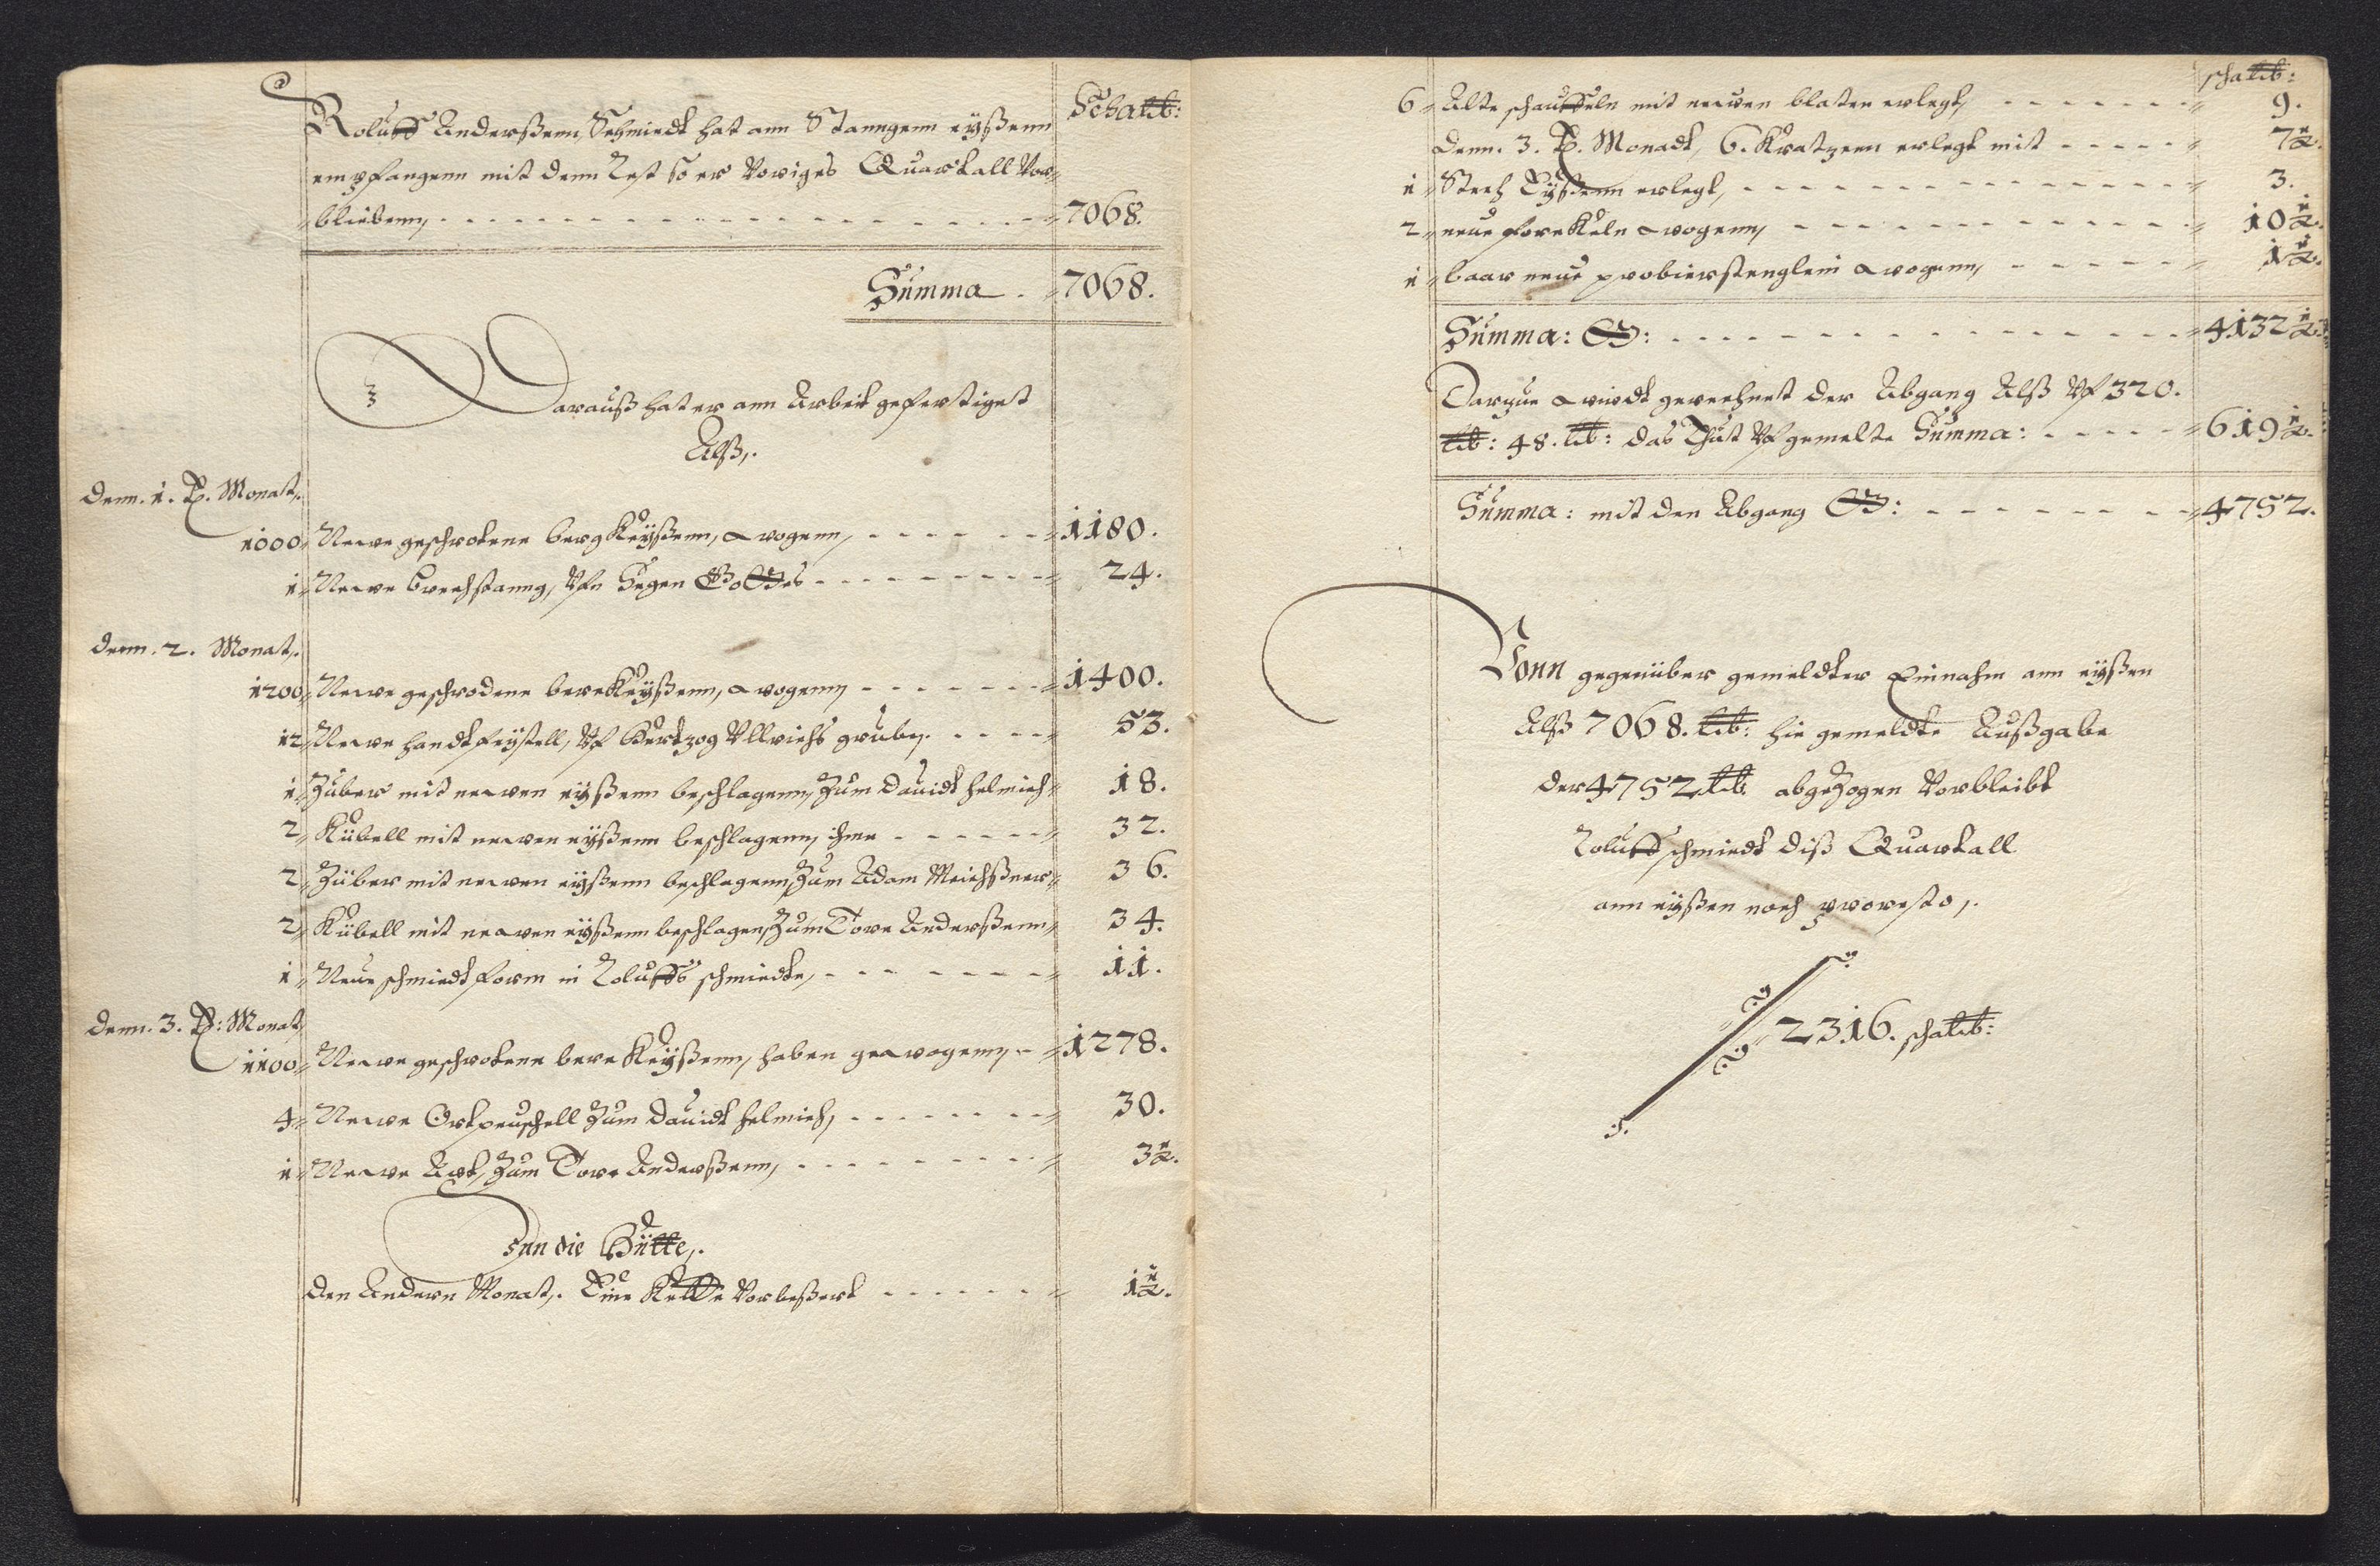 Schalb:
Roluff Anderßenn, Schmiedt hat ann Stanngenn eyßenn
empfangenn mit denn Rest so er Voriges Quartall Vor„
„bliebenn, 7068.
Summa . 7068.
Darauß hat er ann Arbeit gefertiget
Alß,.
Denn. 1. P. Monat,.
1000 Newe geschrotene bergkeyßenn, wogenn, 1180.
1 Newe brechstanng, Vfn Segen Gottes 24.
Denn. 2. Monat,.
1200 Newe geschrodene berckeyßenn, wogenn, 1400.
12 Newe handtfeystell, Vf Hertzog Ullrichs grube, 53.
1 Züber mit newen eyßenn beschlagenn, Zum Dauidt Helmich 18.
2 Kübell mit newen eyßenn beschlagenn, ihme 32.
2 Züber mit newen eyßenn beschlagenn, Zum Adam Meichßner 36.
2 Kübell mit newen eyßenn beschlagen, Zum Tore Anderßenn 34.
1 Neue schmiedt form in Roluffs schmiedte, 11.
Denn. 3. P: Monat,
1100 Newe geschrotene berckeyßenn, haben gewogenn, 1278.
4 Newe Ortpeuschell Zum Dauidt Helmich, 30.
1 Newe Axt, Zum Tore Anderßenn, 3½.
Inn die Hütte,.
Den Andern Monat,. Eine Kette Vorbeßert 1½.
schalb:
6 Alte schauffeln mit newen blaten erlegt, 9.
Denn. 3. P. Monadt, 6. Kratzenn erlegt mit 7½.
1 Stech Eyßenn erlegt, 3.
2 neue forckeln wogenn, 10½.
1 baar neue probierstenglein wogenn, 1½.
Summa: 4132½.
Darzue wirdt gerechnet der Abgang Alß Vf 320.
lb: 48. lb: das Thut Vf gemelte Summa: 619½.
Summa: mit den Abgang 4752.
Vonn gegenüber gemeldter Einnahm ann eyßen
Alß 7068. lb: hie gemeldte Außgabe
der 4752 lb. abgezogen Vorbleibt
Roluff schmiedt diß Quartall
ann eyßen noch pro resto,.
2316. schalb: